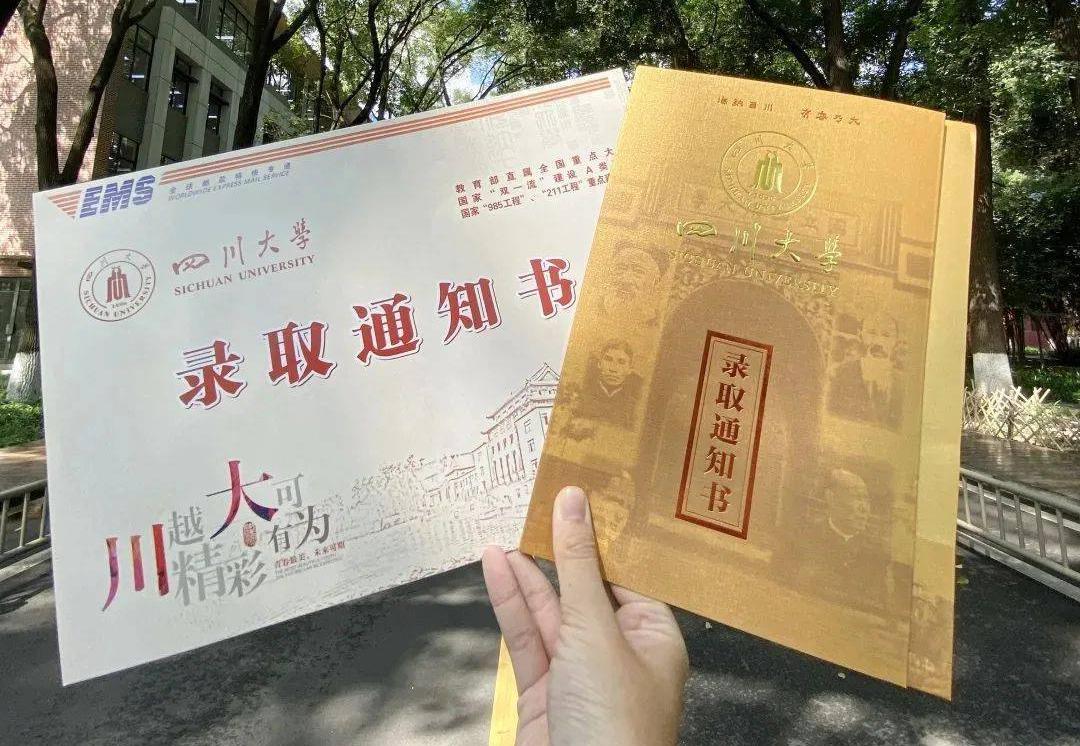 EMS
全球邮政特快专递
WORLDWIDE EXPRESS MAIL SERVICE
教育部直属全国重点大
国家“双一流”建设A类
国家“985工程”、“211工程”重点
四川大學
SICHUAN UNIVERSITY
四川大學
SICHUAN UNIVERSITY
1896
录取通知书
川越精彩
大可有为
青春最美、未来可期
海納百川 有容乃大
四川大學
四川大學
SICHUAN UNIVERSITY
录取通知书